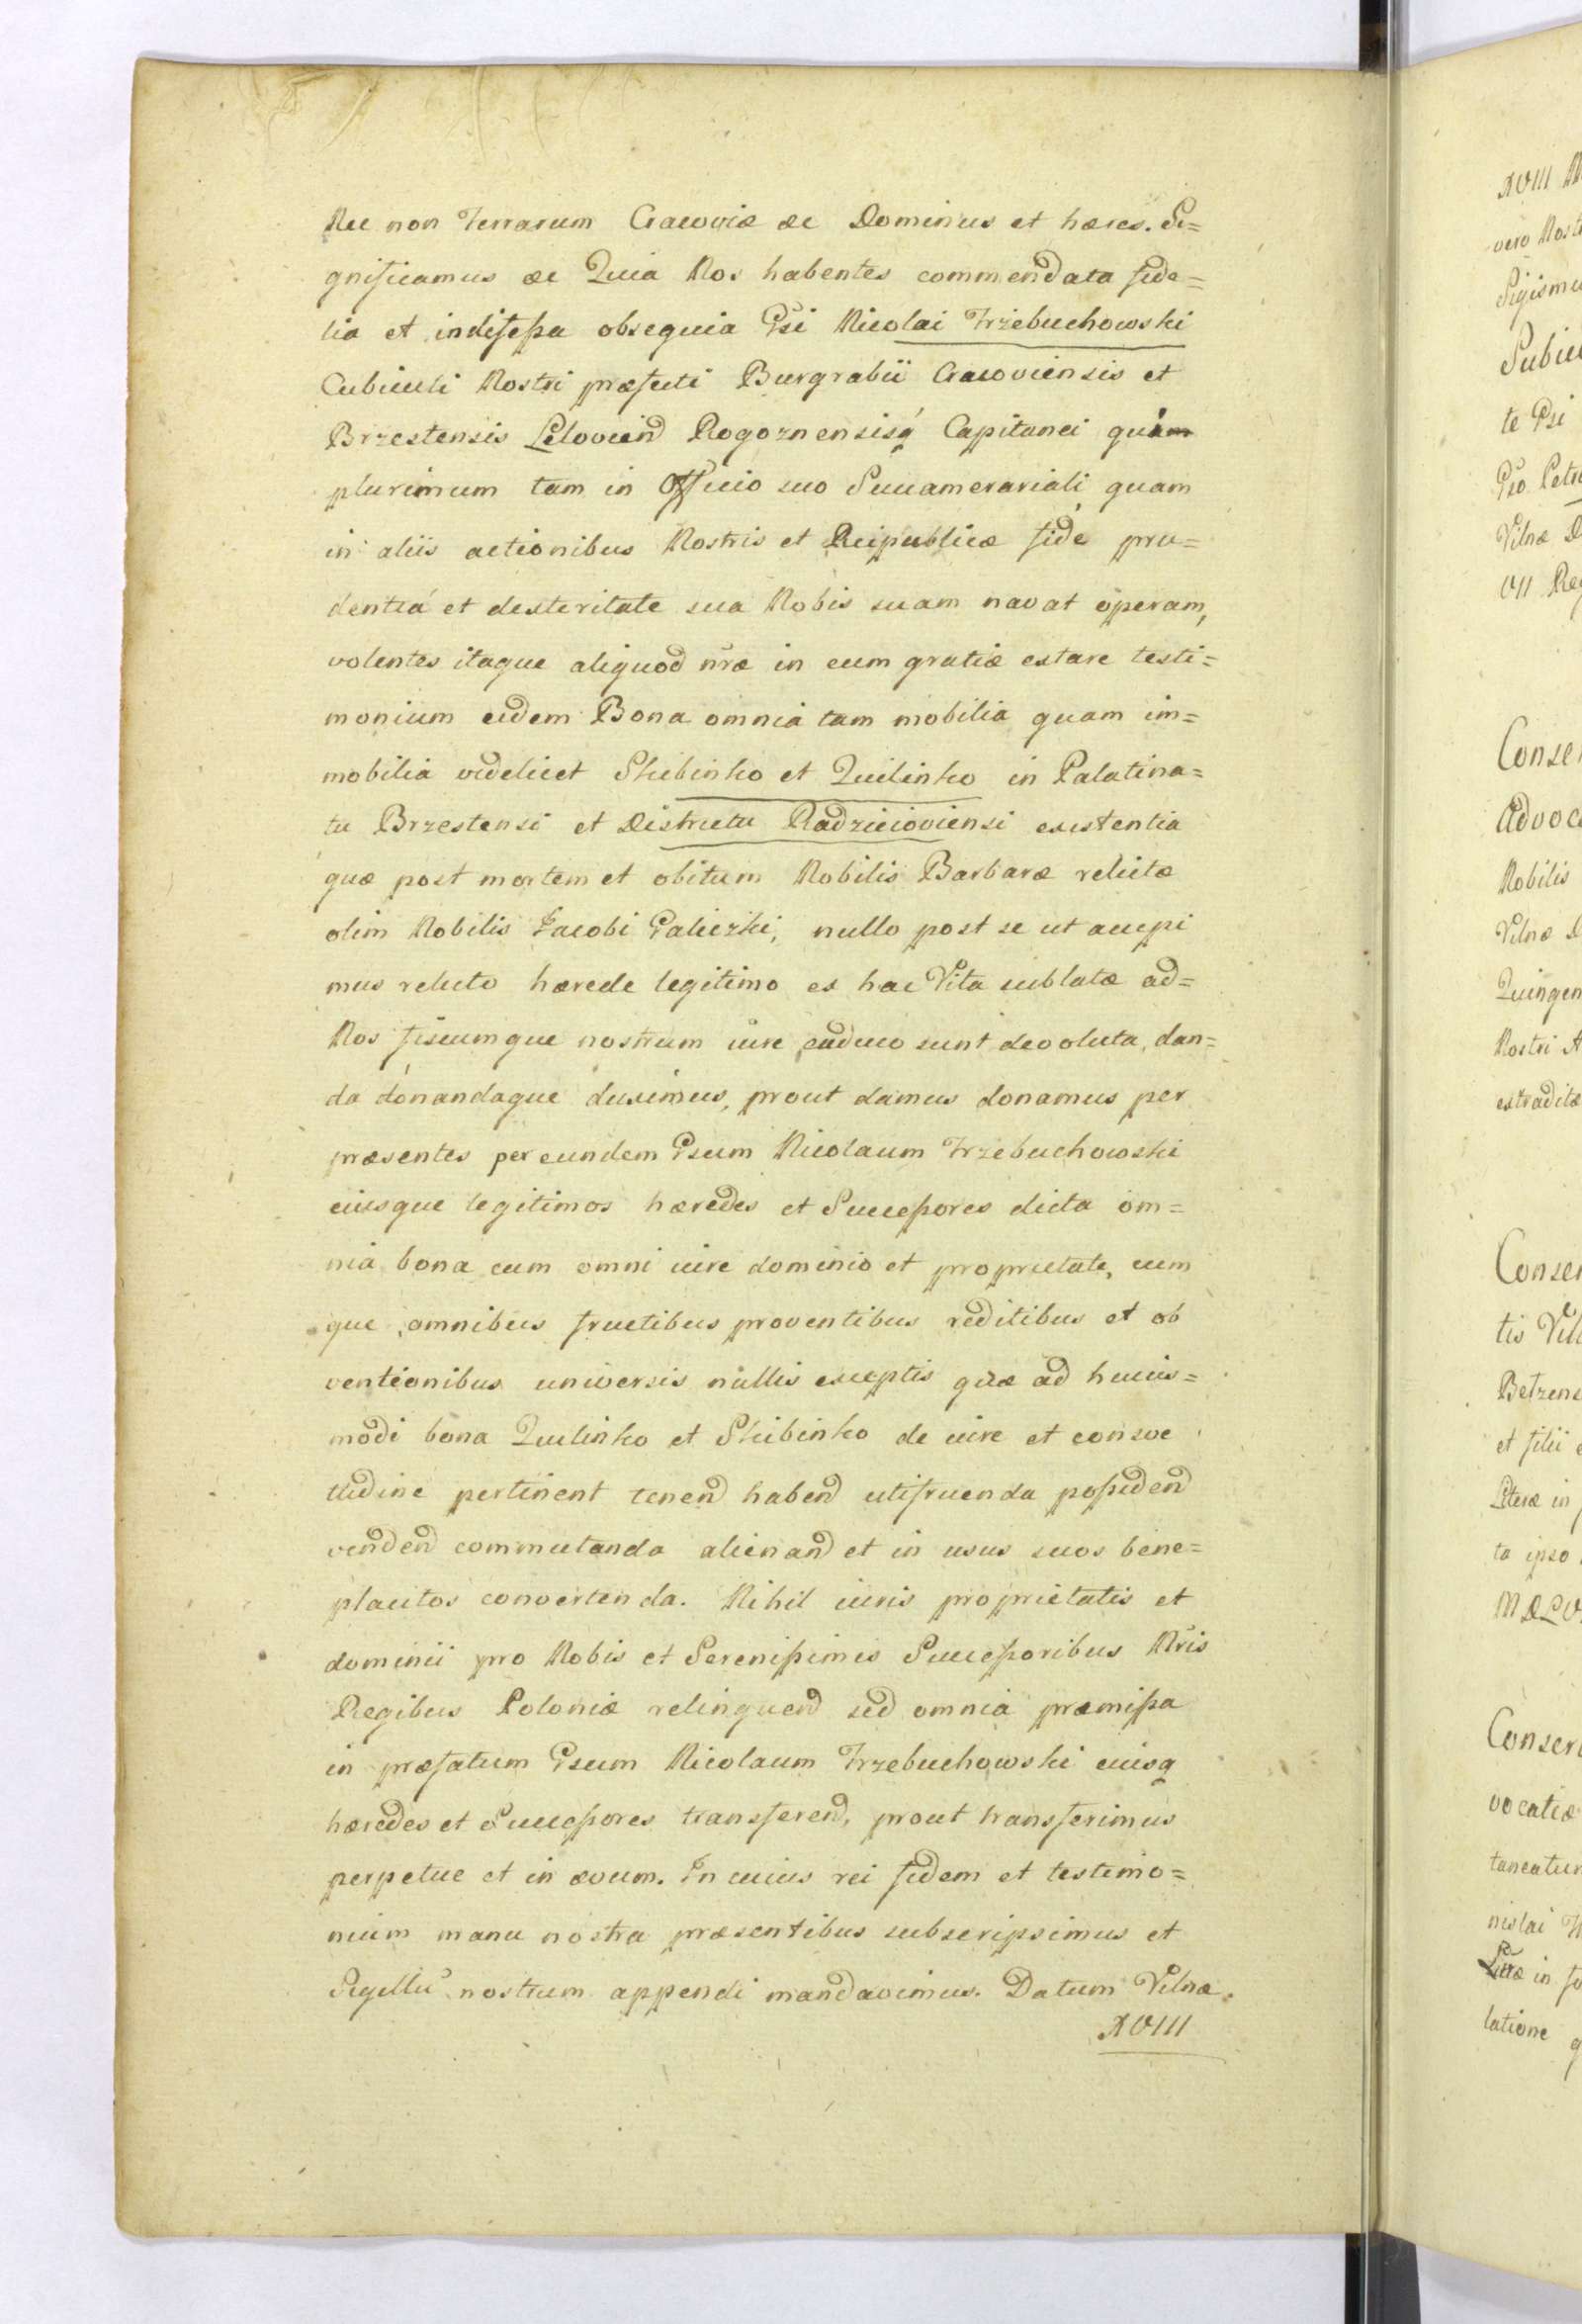 Nec non Terrarum Cracoviæ æc Dominus et hæres. Si=
gnificamus æc Quia Nos habentes commendata fide=
lia et indifeßa obsequia Gsi Nicolai Trzebuchowski
Cubiculi Nostri præfecti Burgrabii Cracoviensis et
Brzestensis Leloviend Rogoznensisq Capitanei quam
plurimum tam in Officio suo Succamerariali quam
in aliis actionibus Nostris et Reipublicæ fide pru=
dentiá et dexteritate sua Nobis suam navat operam,
volentes itaque aliquod nræ in eum gratiæ extare testi=
monium eidem Bona omnia tam mobilia quam im=
mobilia videlicet Skibinko et Quilinko in Palatina=
tu Brzestensi et Districtu Radzicioviensi existentia
quæ post mortem et obitum Nobilis Barbaræ relictæ
olim Nobilis Jacobi Galiczki, nullo post se ut accepi
mus relicto hærede legitimo ex hac Vita sublatæ ad=
Nos fiscumque nostrum iure caduco sunt devoluta, dan=
da donandaque duximus, prout damus donamus per
præsentes per eundem Gsum Nicolaum Trzebuchowski
eiusque legitimos hæredes et Succeßores dicta om=
nia bona cum omni iure dominio et proprietate, cum
que omnibus fructibus proventibus reditibus et ob
ventionibus universis nullis exceptis quæ ad huius=
modi bona Quilinko et Skibinko de iure et consve
tudine pertinent tenend habend utifruenda poßidend
vendend commutanda alienand et in usus suos bene=
placitos convertenda. Nihil iuris proprietatis et
dominii pro Nobis et Serenißimis Succeßoribus Nris
Regibus Poloniæ relinquend sed omnia præmißa
in præfatum Gsum Nicolaum Trzebuchowski eiusq
hæredes et Succeßores transferend, prout transferimus
perpetue et in ævum. In cuius rei fidem et testimo=
nium manu nostra præsentibus subscripsimus et
Sigillu nostrum appendi mandavimus. Datum Vilnæ.
XVIII
XVIII
vero
Vilnæ
VII
Advoc
Nobilis
Vilnæ
Quingen
Nostri
extraditæ
et filii
ta ipso
vocatiæ
latione